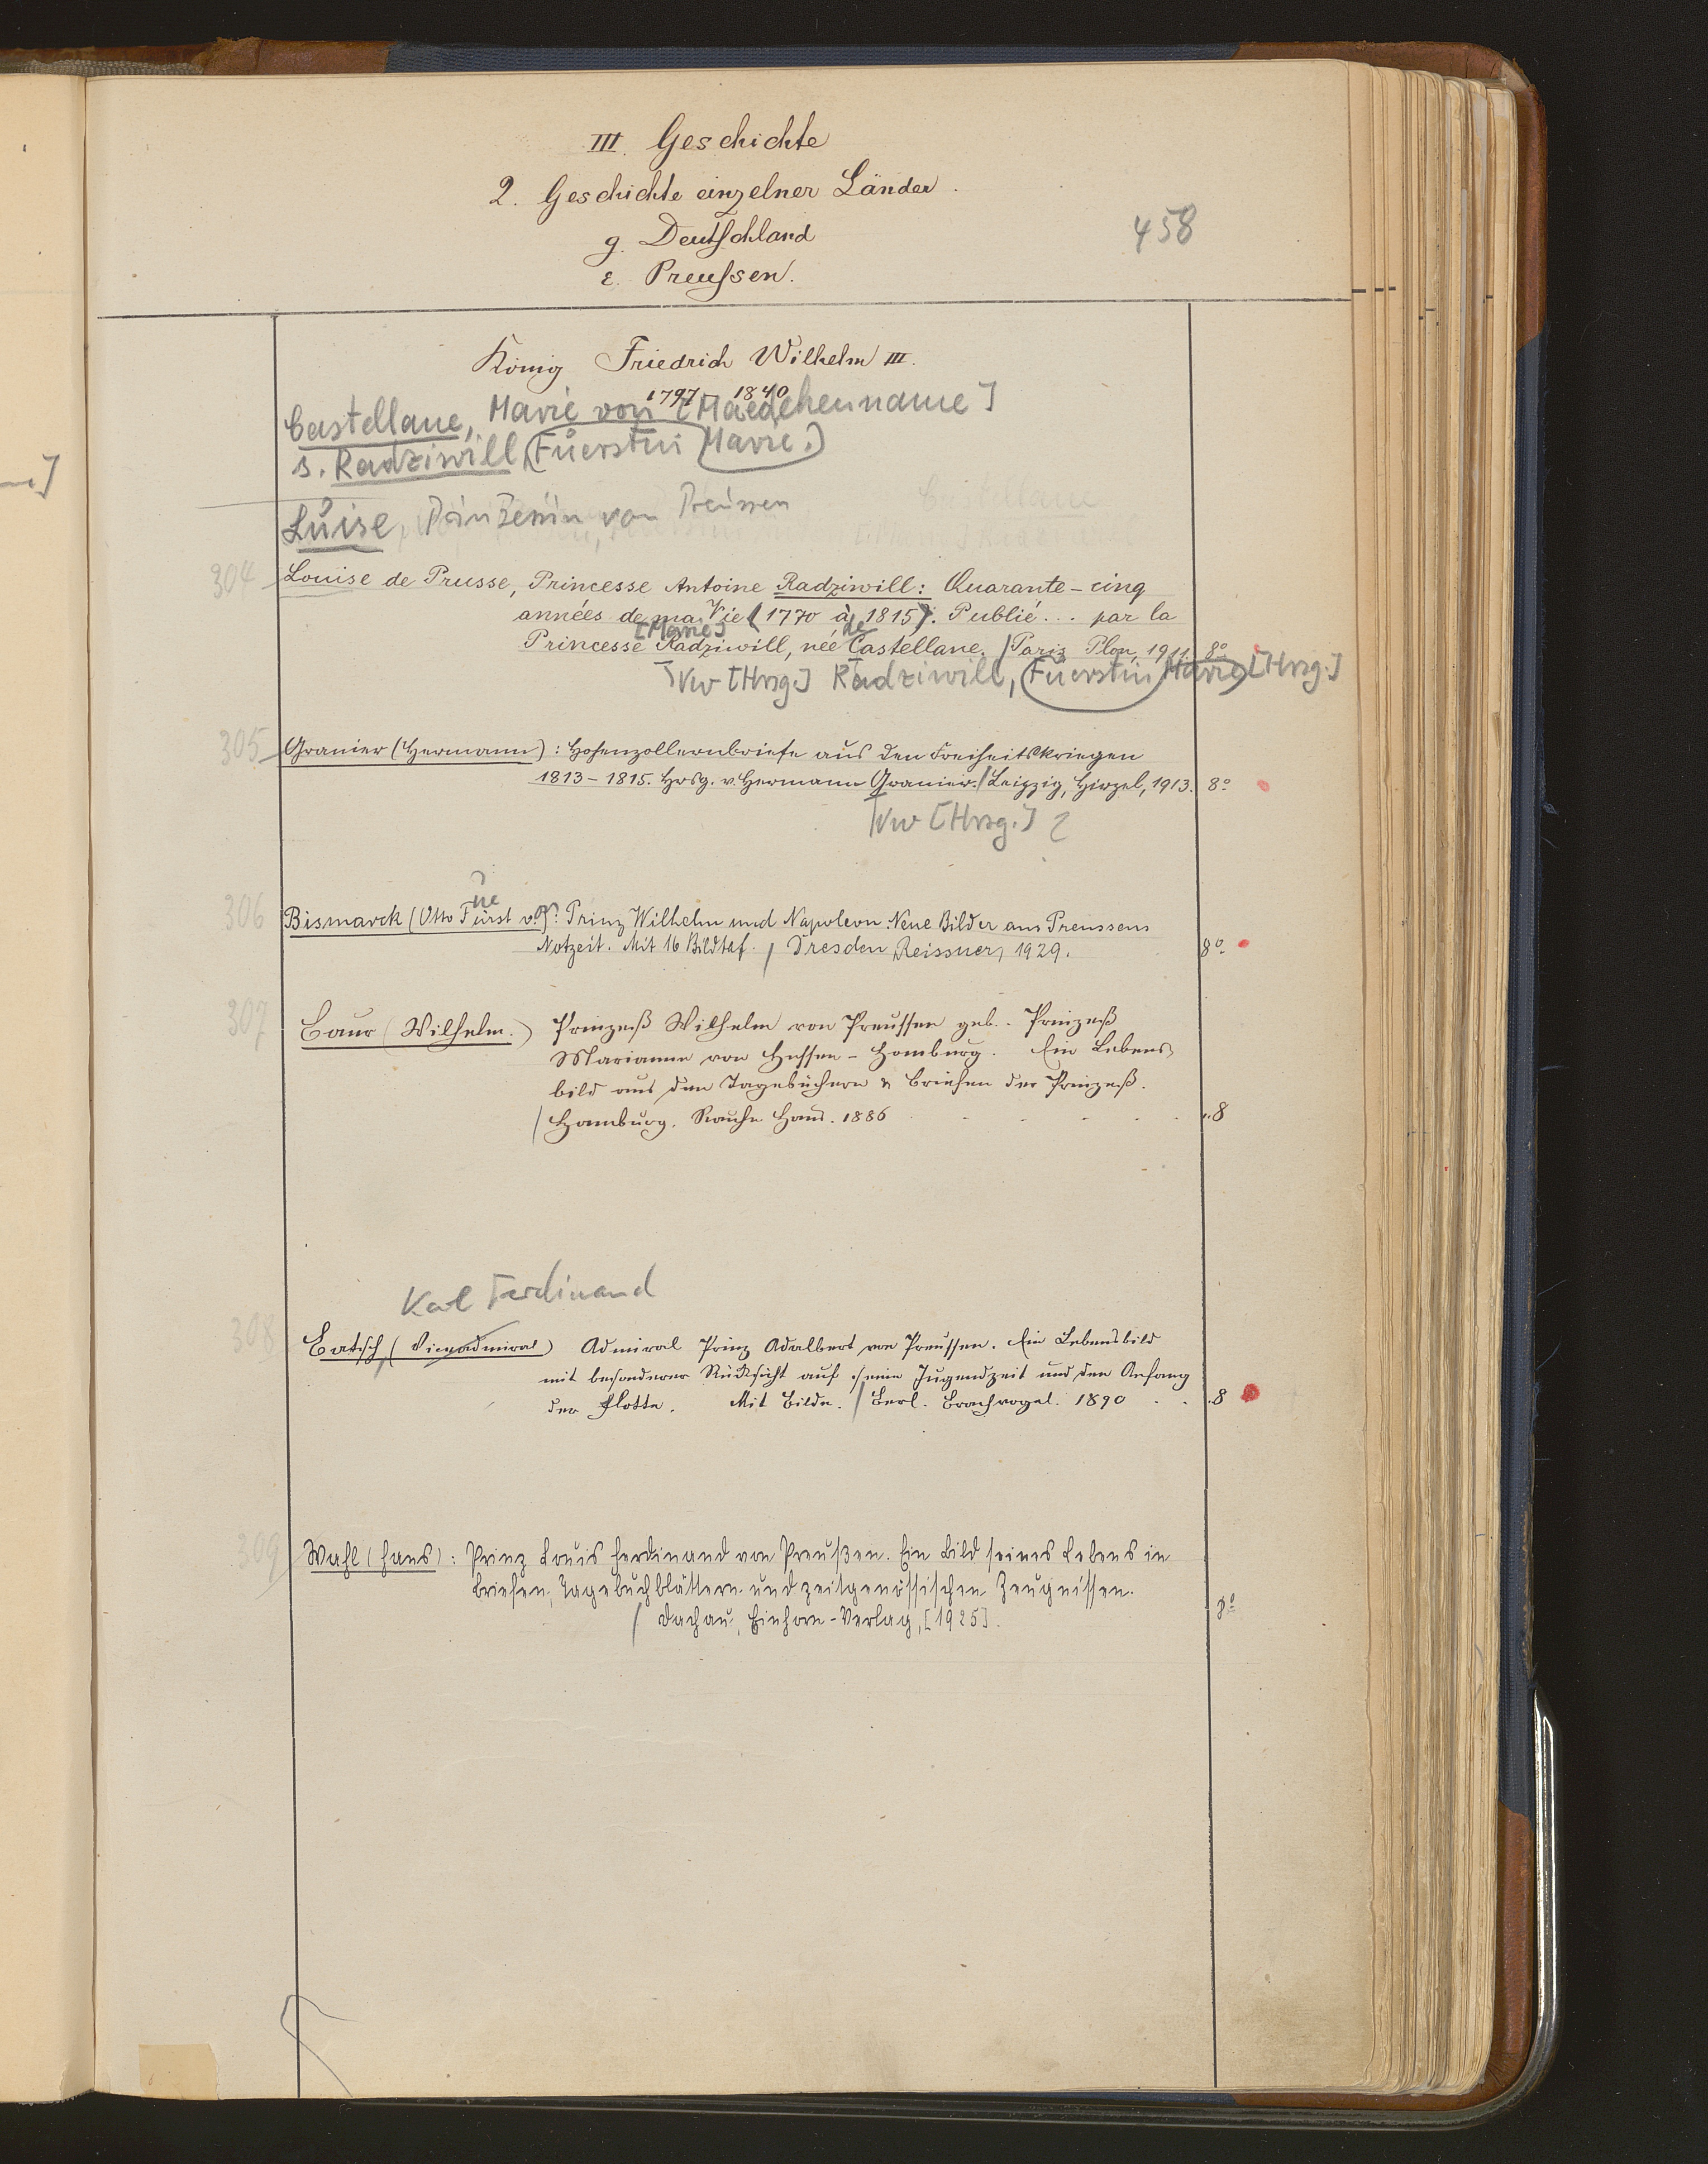 III. Geschichte
2. Geschichte einzelner Länder.
g. Deutschland
458
ε. Preußen.
König Friedrich Wilhelm III.
1797 – 1840
Castellane, Marie von [Maedchenname]
s. Radziwill, Fuerstin Marie.
Luise, Prinzessin von Preussen
304 Louise de Prusse, Princesse Antoine Radziwill: Quarante-cinq
années de ma Vie (1770 à 1815). Publié... par la
[Marie] de
Princesse Radziwill, née Castellane. / Paris Plon, 1911. 8°
Vw [Hrsg.] Radziwill, Fuerstin Marie [Hrsg.]
305 Granier (Hermann): Hohenzollernbriefe aus den Freiheitskriegen
1813–1815. Hrsg. v. Hermann Granier. / Leipzig, Hirzel, 1913. 8°
Vw [Hrsg.] ?
ue
306 Bismarck (Otto Fürst v.): Prinz Wilhelm und Napoleon. Neue Bilder aus Preussens
Notzeit. Mit 16 Bildtaf. / Dresden, Reissner, 1929. 8°
307 Baur (Wilhelm.) Prinzeß Wilhelm von Preussen geb. Prinzeß
Marianne von Hessen-Homburg. Ein Lebens-
bild aus den Tagebüchern & Briefen der Prinzeß.
/ Hamburg. Rauhe Haus. 1886 . . . . . 8
Karl Ferdinand
308 Batsch, (Viceadmiral) Admiral Prinz Adalbert von Preussen. Ein Lebensbild
mit besonderer Rücksicht auf seine Jugendzeit und den Anfang
der Flotte. Mit Bilde. / Berl. Brachvogel. 1890 . . . 8
309 Wahl (Hans): Prinz Louis Ferdinand von Preußen. Ein Bild seines Lebens in
Briefen, Tagebuchblättern und zeitgenössischen Zeugnissen.
/ Dachau, Einhorn-Verlag, [1925]. 8°